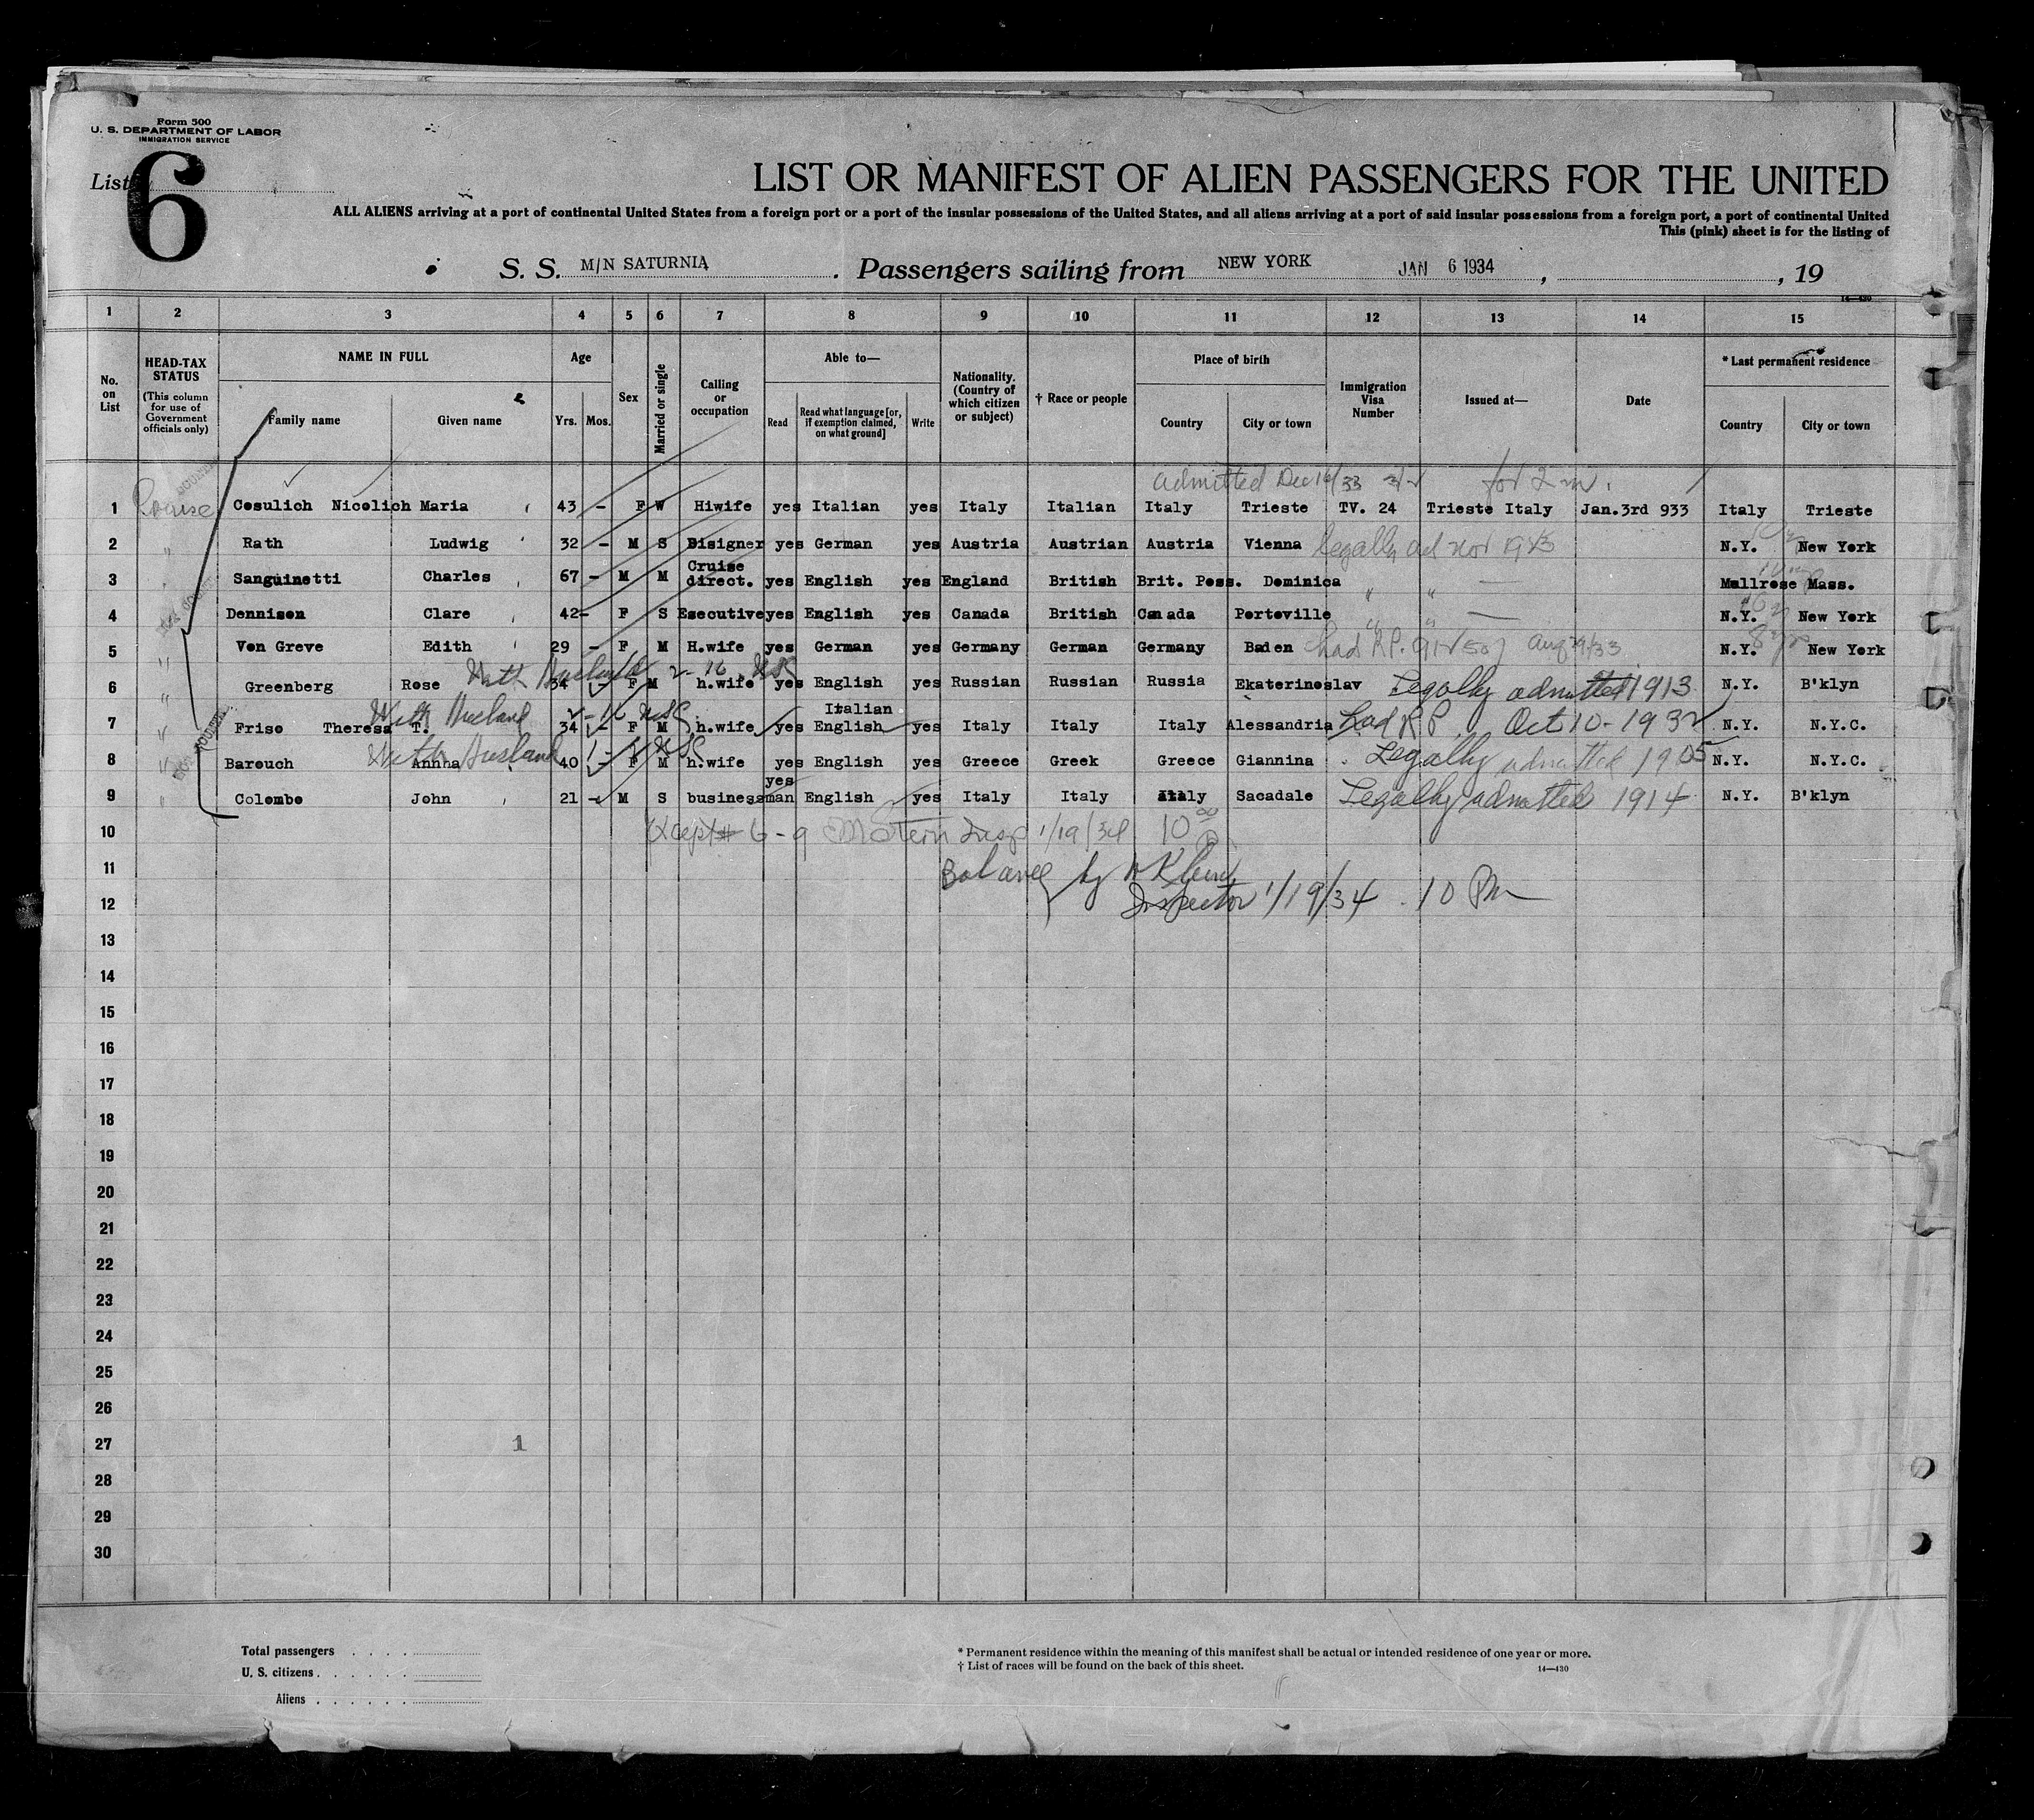 Form 500
U. S. DEPARTMENT OF LABOR
IMMIGRATION SERVICE
List 6
LIST OR MANIFEST OF ALIEN PASSENGERS FOR THE UNITED
ALL ALIENS arriving at a port of continental United States from a foreign port or a port of the insular possessions of the United States, and all aliens arriving at a port of said insular possessions from a foreign port, a port of continental United
This (pink) sheet is for the listing of
S. S. M/N SATURNIA . Passengers sailing from NEW YORK JAN 6 1934 , , 19
14—430
1 2 3 4 5 6 7 8 9 10 11 12 13 14 15
No. on List
HEAD-TAX STATUS
(This column for use of Government officials only)
NAME IN FULL
Family name Given name
Age
Yrs. Mos.
Sex
Married or single
Calling or occupation
Able to—
Read Read what language [or, if exemption claimed, on what ground] Write
Nationality. (Country of which citizen or subject)
† Race or people
Place of birth
Country City or town
Immigration Visa Number
Issued at—
Date
* Last permanent residence
Country City or town
admitted Dec 16/33 for 2 m.
1 Cruise Cosulich Nicolich Maria 43 - F W Hiwife yes Italian yes Italy Italian Italy Trieste TV. 24 Trieste Italy Jan.3rd 933 Italy Trieste
2 " Rath Ludwig 32 - M S Disigner yes German yes Austria Austrian Austria Vienna legally ad N.Y. New York
Cruise
3 Sanguinetti Charles 67 - M M direct. yes English yes England British Brit. Poss. Dominica Mellrose Mass.
4 Dennison Clare 42- F S Esecutive yes English yes Canada British Canada Porteville " " N.Y. New York
5 Von Greve Edith 29 - F M H.wife yes German yes Germany German Germany Baden had R.P. Aug 29/33 N.Y. New York
With Husband
6 Greenberg Rose 34 - F M h.wife yes English yes Russian Russian Russia Ekaterinoslav Legally admitted 1913 N.Y. B'klyn
With Husband Italian
7 Friso Theresa T. 34 - F M h.wife yes English yes Italy Italy Italy Alessandria had R P Oct 10-1932 N.Y. N.Y.C.
With Husband
8 Barouch Annha 40 - F M h.wife yes English yes Greece Greek Greece Giannina Legally admitted 1905 N.Y. N.Y.C.
yes
9 Colombo John 21 - M S businessman English yes Italy Italy Italy Sacadale Legally admitted 1914 N.Y. B'klyn
10 Except # 6-9 Stern Insp 1/19/34 10
11 Balance by
12 Inspector 1/19/34 . 10 PM
13
14
15
16
17
18
19
20
21
22
23
24
25
26
27 1
28
29
30
Total passengers . . . .
U. S. citizens . . . . . .
Aliens . . . . . .
* Permanent residence within the meaning of this manifest shall be actual or intended residence of one year or more.
† List of races will be found on the back of this sheet. 14—430